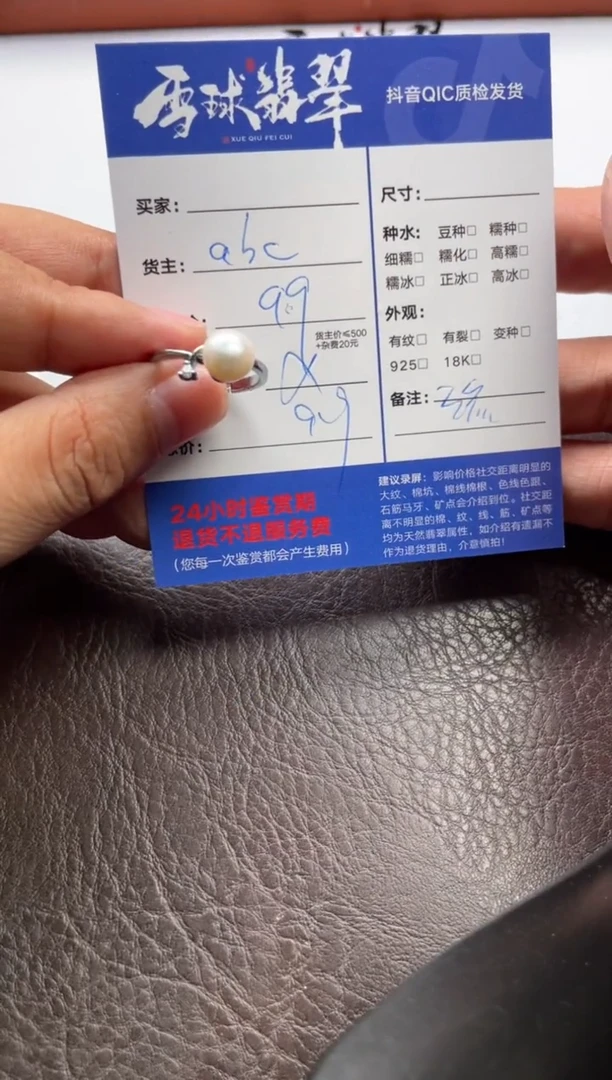 雪球翡翠
XUE QIU FEI CUI
抖音QIC质检发货
买家：
货主：abc
99
货主价≤500
+杂费20元
99
价：
尺寸：
种水： 豆种□ 糯种□
细糯□ 糯化□ 高糯□
糯冰□ 正冰□ 高冰□
外观：
有纹□ 有裂□ 变种□
925□ 18K□
备注：
24小时鉴赏期
退货不退服务费
（您每一次鉴赏都会产生费用）
建议录屏：影响价格社交距离明显的
大纹、棉坑、棉线棉根、色线色眼、
石筋马牙、矿点会介绍到位。社交距
离不明显的棉、纹、线、筋、矿点等
均为天然翡翠属性，如介绍有遗漏不
作为退货理由，介意慎拍！